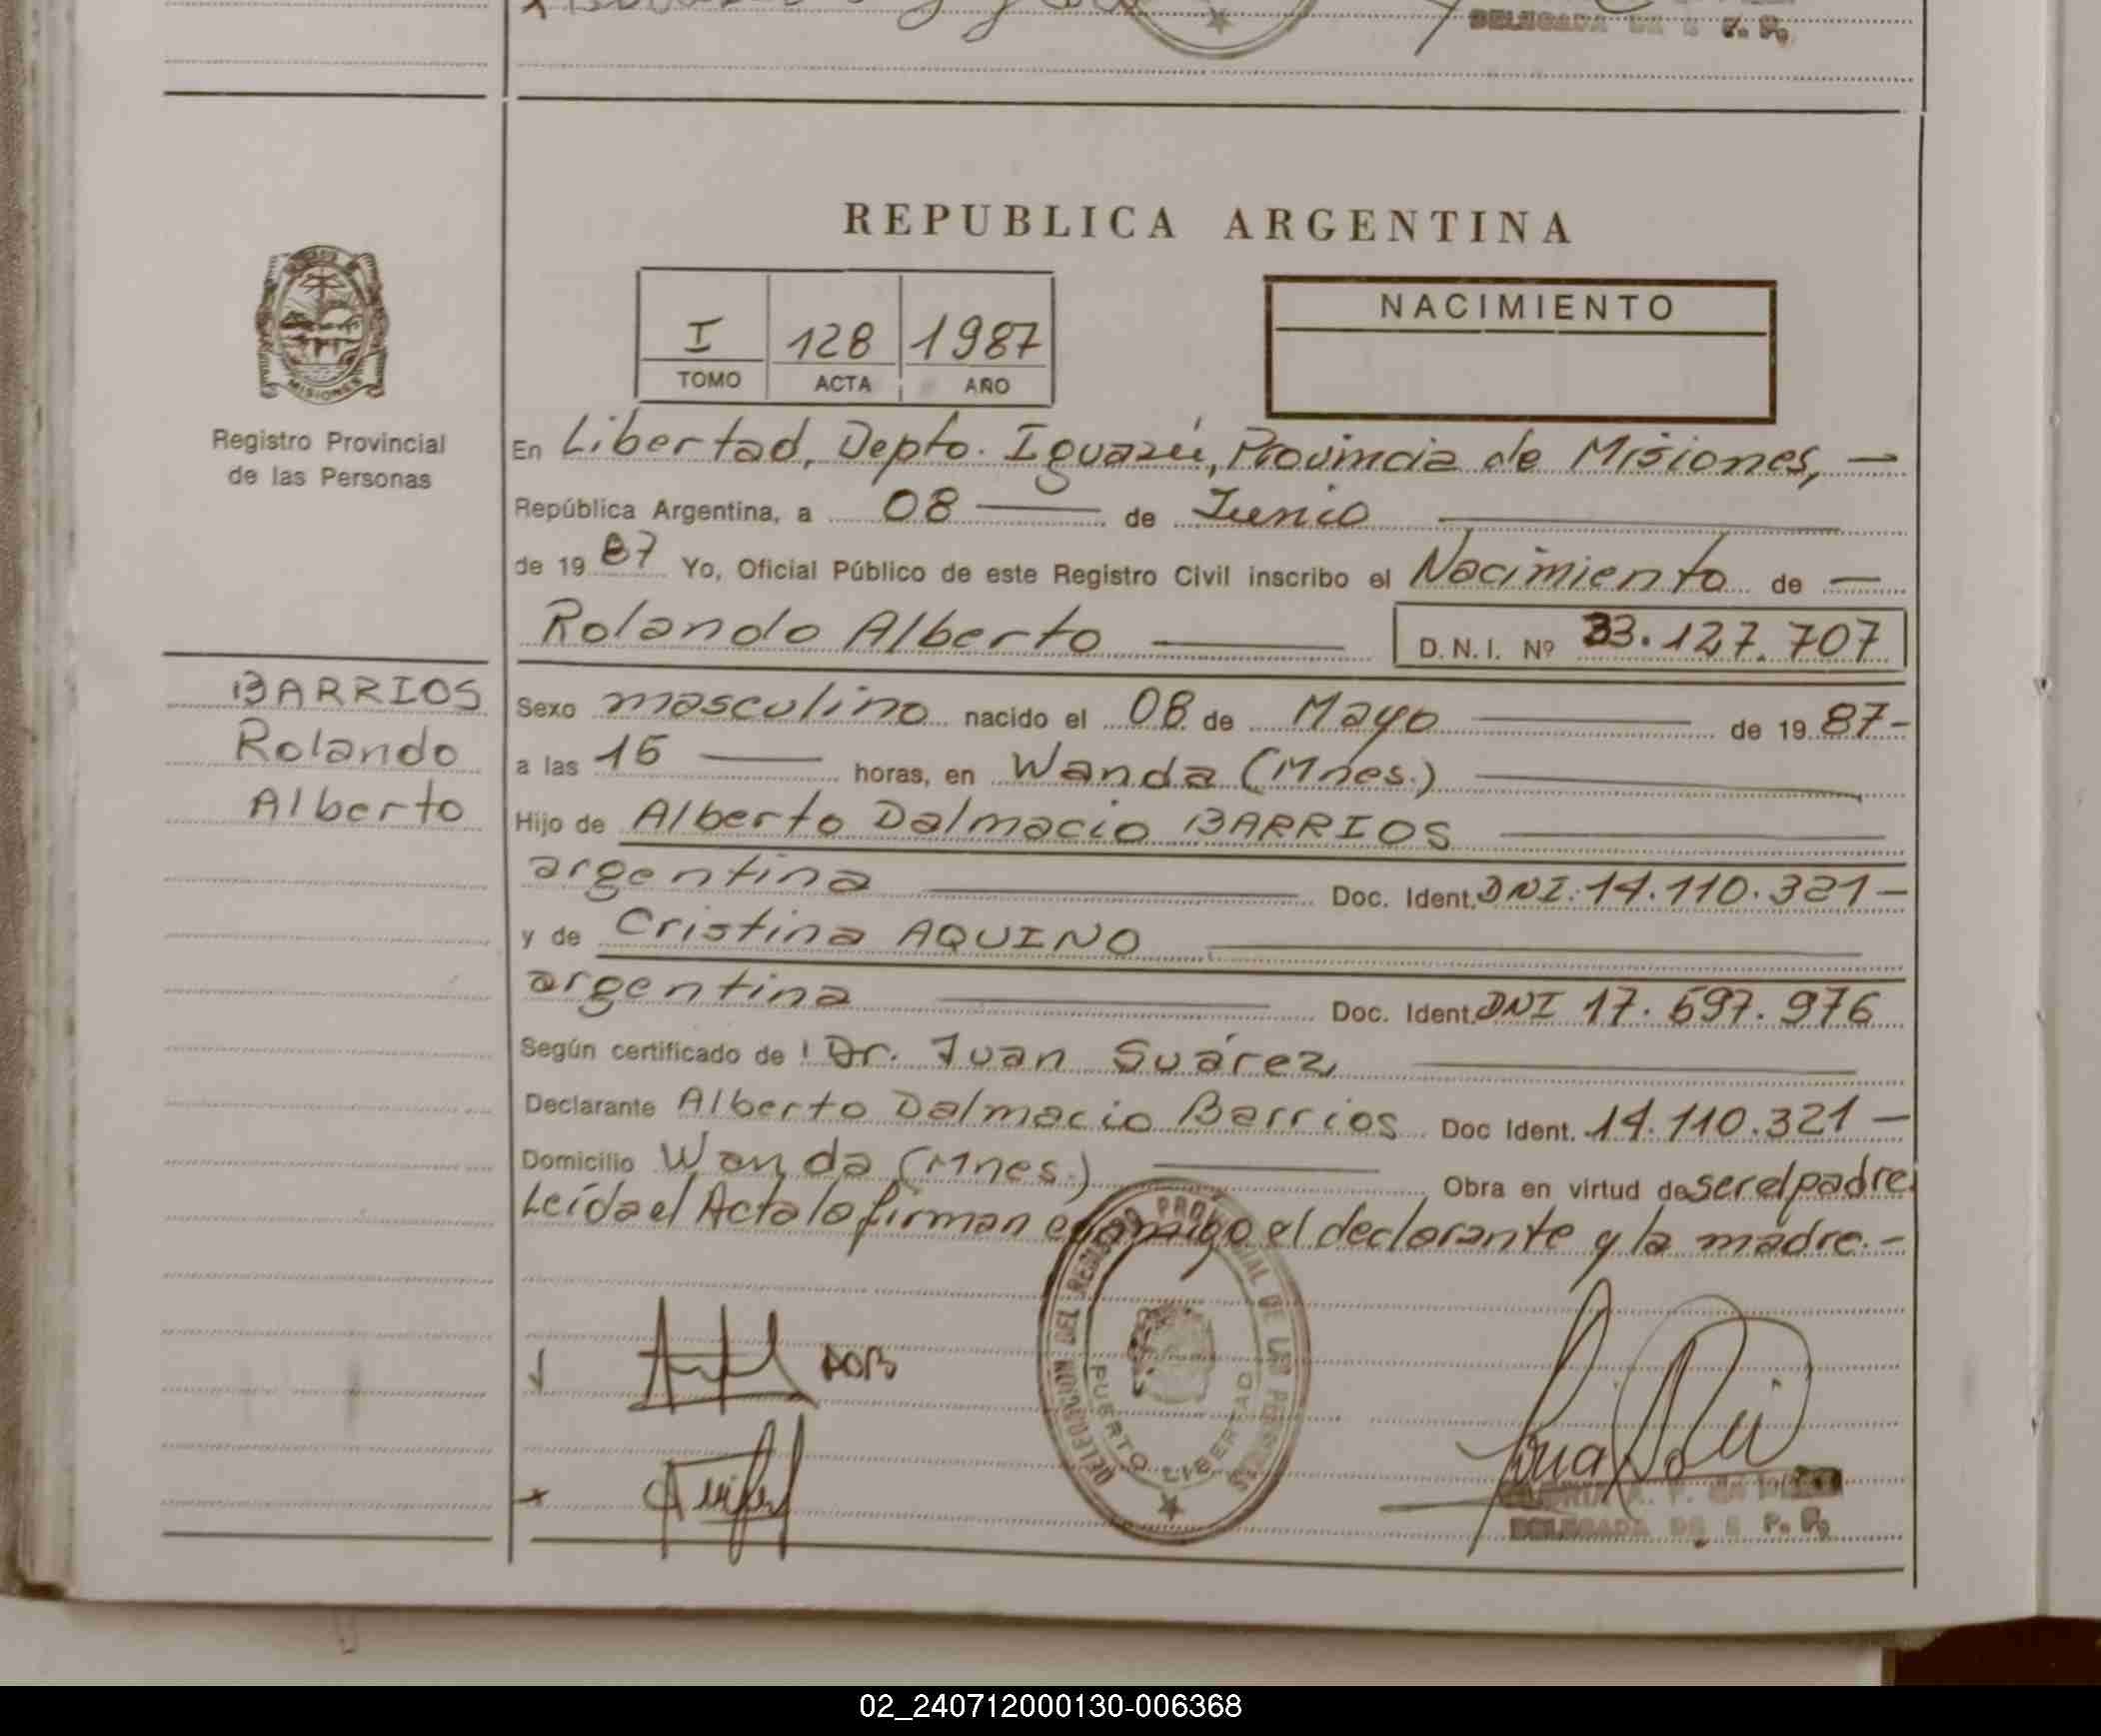 DELEGADA DE E P. P.
REPUBLICA ARGENTINA
I 128 1987
TOMO ACTA AÑO
NACIMIENTO
MISIONES
Registro Provincial
de las Personas
En Libertad, Depto. Iguazú, Provincia de Misiones, —
República Argentina, a 08 — de Junio —
de 19 87 Yo, Oficial Público de este Registro Civil inscribo el Nacimiento de —
Rolando Alberto — D.N.I. Nº 33.127.707
BARRIOS
Rolando
Alberto
Sexo masculino nacido el 08 de Mayo — de 19 87-
a las 15 — horas, en Wanda (Mnes.) —
Hijo de Alberto Dalmacio BARRIOS —
argentina — Doc. Ident. DNI. 14.110.321 —
y de Cristina AQUINO —
argentina — Doc. Ident. DNI 17.697.976
Según certificado de Dr. Juan Suárez —
Declarante Alberto Dalmacio Barrios Doc Ident. 14.110.321 —
Domicilio Wanda (Mnes.) — Obra en virtud de ser el padre
Leída el Acta la firman conmigo el declarante y la madre.-
DELEGACION DEL REGISTRO PROVINCIAL DE LAS PERSONAS
PUERTO LIBERTAD
DELEGADA DE E P. P.
02_240712000130-006368